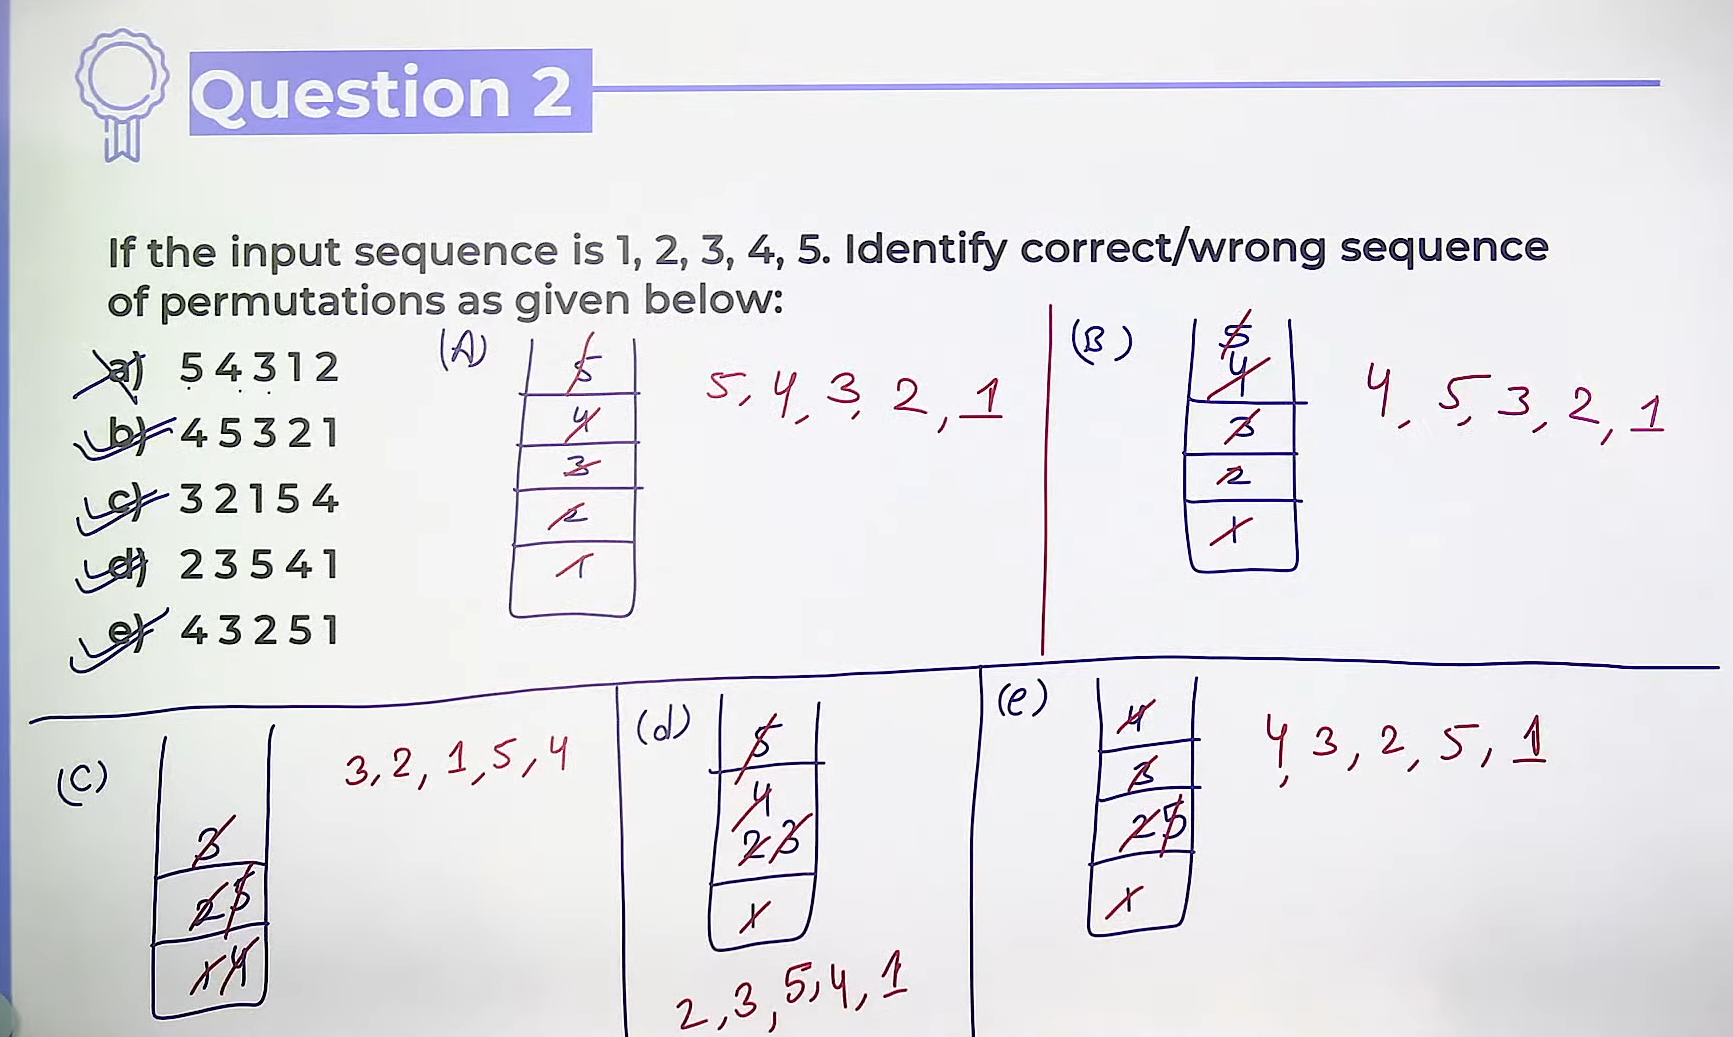 Question 2
If the input sequence is 1, 2, 3, 4, 5. Identify correct/wrong sequence
of permutations as given below:
a) 5 4 3 1 2
b) 4 5 3 2 1
c) 3 2 1 5 4
d) 2 3 5 4 1
e) 4 3 2 5 1
(A)
5
4
3
2
1
5, 4, 3, 2, 1
(B)
5
4
3
2
1
4, 5, 3, 2, 1
(C)
3
2 5
1 4
3, 2, 1, 5, 4
(d)
5
4
2 3
1
2, 3, 5, 4, 1
(e)
4
3
2 5
1
4, 3, 2, 5, 1